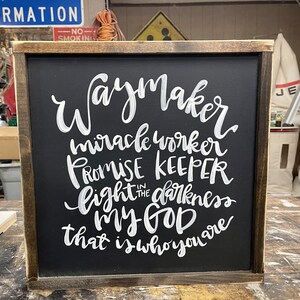 RMATION
NO
SMOKING
Waymaker
miracle worker
PROMISE KEEPER
light IN THE darkness
MY GOD
that is who you are